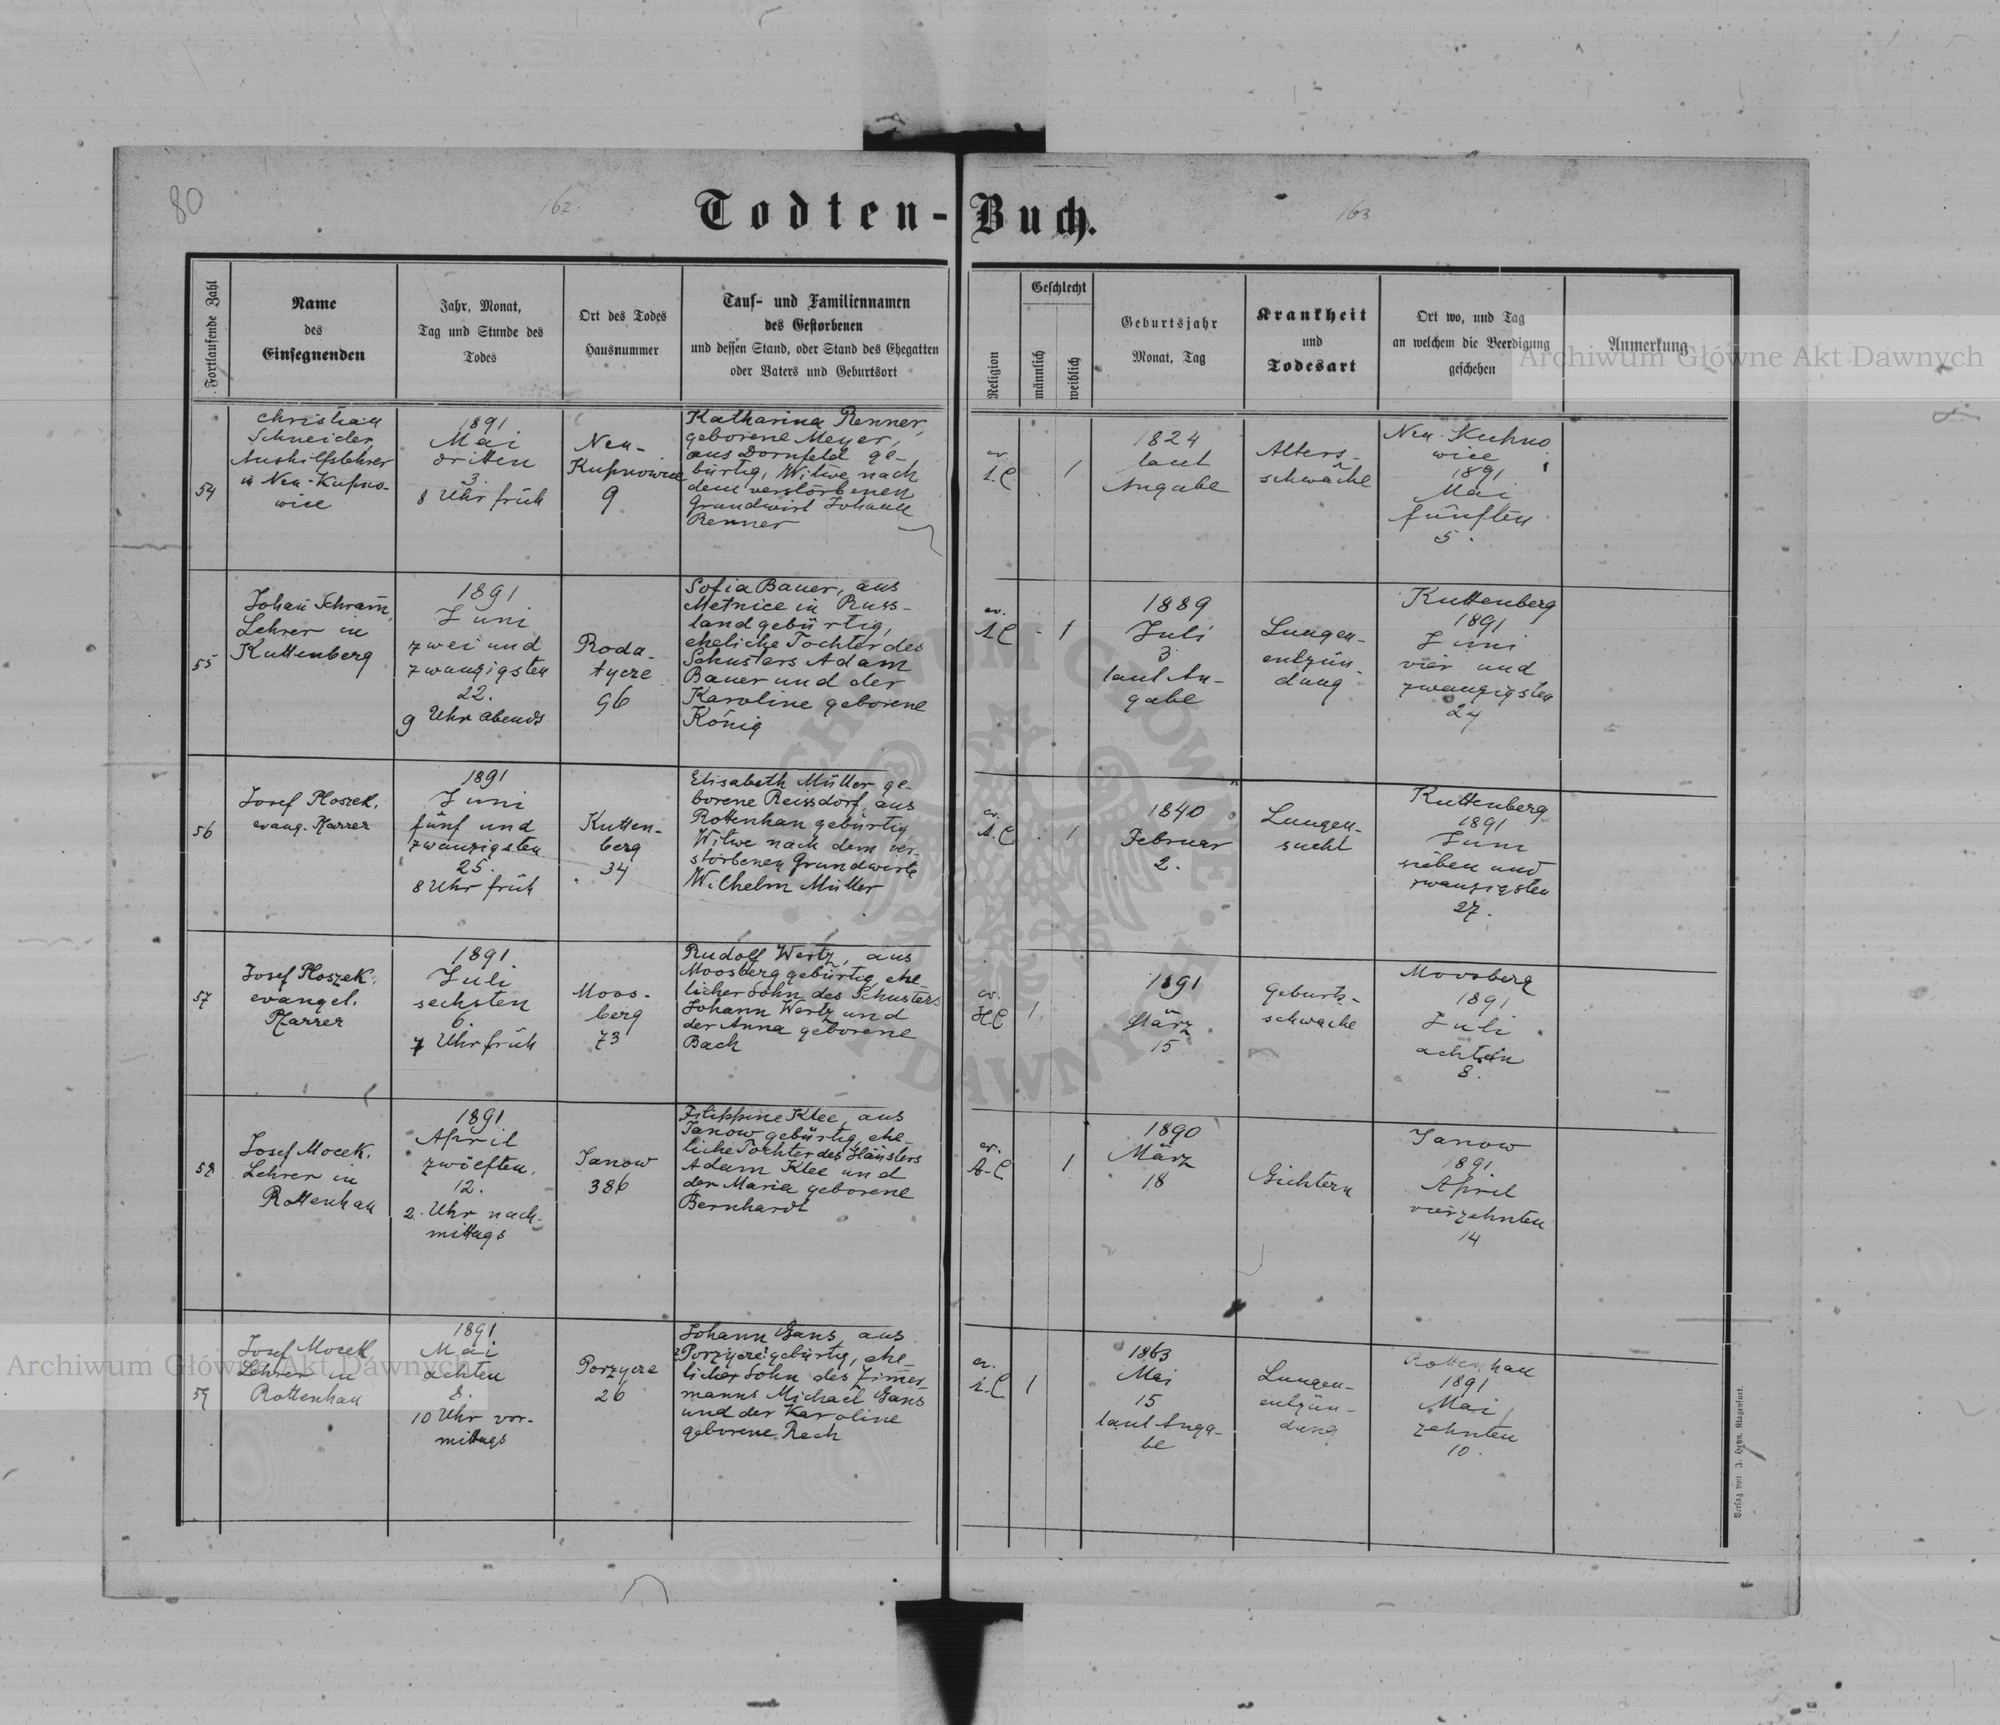 80
162.
163
Todten-Buch.
Fortlaufende Zahl
Name
des
Einsegnenden
Jahr, Monat,
Tag und Stunde des
Todes
Ort des Todes
Hausnummer
Tauf- und Familiennamen
des Gestorbenen
und dessen Stand, oder Stand des Ehegatten
oder Vaters und Geburtsort
Religion
Geschlecht
männlich
weiblich
Geburtsjahr
Monat, Tag
Krankheit
und
Todesart
Ort wo, und Tag
an welchem die Beerdigung
geschehen
Anmerkung
54
Christian
Schneider,
Aushilfslehrer
in Neu-Kupno-
wice
1891
Mai
dritten
3.
8 Uhr früh
Neu-
Kupnowice
9
Katharina Renner,
geborene Meyer,
aus Dornfeld ge-
bürtig, Witwe nach
dem verstorbenen
Grundwirt Johann
Renner
ev.
A.C.
1
1824
laut
Angabe
Alters-
schwäche
Neu-Kupno
wice
1891
Mai
fünften
5.
55
Johañ Schram̄,
Lehrer in
Kuttenberg
1891
Juni
zwei und
zwanzigsten
22.
9 Uhr abends
Roda-
tycze
96
Sofia Bauer, aus
Metnice in Russ-
land gebürtig,
eheliche Tochter des
Schusters Adam
Bauer und der
Karoline geborene
König
ev.
A.C
- 1
1889
Juli
3.
laut An-
gabe
Lungen-
entzün-
dung
Kuttenberg
1891
Juni
vier und
zwanzigsten
24
56
Josef Ploszek,
evang. Pfarrer
1891
Juni
fünf und
zwanzigsten
25.
8 Uhr früh
Kutten-
berg
34
Elisabeth Müller ge-
borene Reissdorf, aus
Rottenhan gebürtig,
Witwe nach dem ver-
storbenen Grundwirte
Wilhelm Müller
ev.
A.C
1
1840
Februar
2.
Lungen-
sucht
Kuttenberg
1891
Juni
sieben und
zwanzigsten
27.
57
Josef Ploszek.
evangel.
Pfarrer
1891
Juli
sechsten
6.
7 Uhr früh
Moos-
berg
73
Rudolf Wertz, aus
Moosberg gebürtig, ehe-
licher Sohn des Schusters
Johann Wertz und
der Anna geborene
Bach
ev.
H.C
1
1891
März
15
Geburts-
schwäche
Moosberg
1891
Juli
achten
8.
58
Josef Mocek,
Lehrer in
Rottenhan
1891
April
zwölften.
12.
2. Uhr nach-
mittags
Janow
386
Filippine Klee, aus
Janow gebürtig, ehe-
liche Tochter des Häuslers
Adam Klee und
der Maria geborene
Bernhardt
ev.
A-C
1
1890
März
18
Gichtern
Janow
1891
April
vierzehnten
14
59
Josef Mocek,
Lehrer in
Rottenhan
1891
Mai
achten
8.
10 Uhr vor-
mittags
Porzycze
26
Johann Gans, aus
Porzycze gebürtig, ehe-
licher Sohn des Zim̄er
manns Michael Gans
und der Karoline
geborene Rech
ev.
A.C
1
1863
Mai
15
laut Anga-
be
Lungen-
entzün-
dung
Rottenhan
1891
Mai
zehnten
10.
Verlag von J. Heyn, Klagenfurt.
Archiwum Główne Akt Dawnych
Archiwum Główne Akt Dawnych
ARCHIWUM GŁÓWNE AKT DAWNYCH